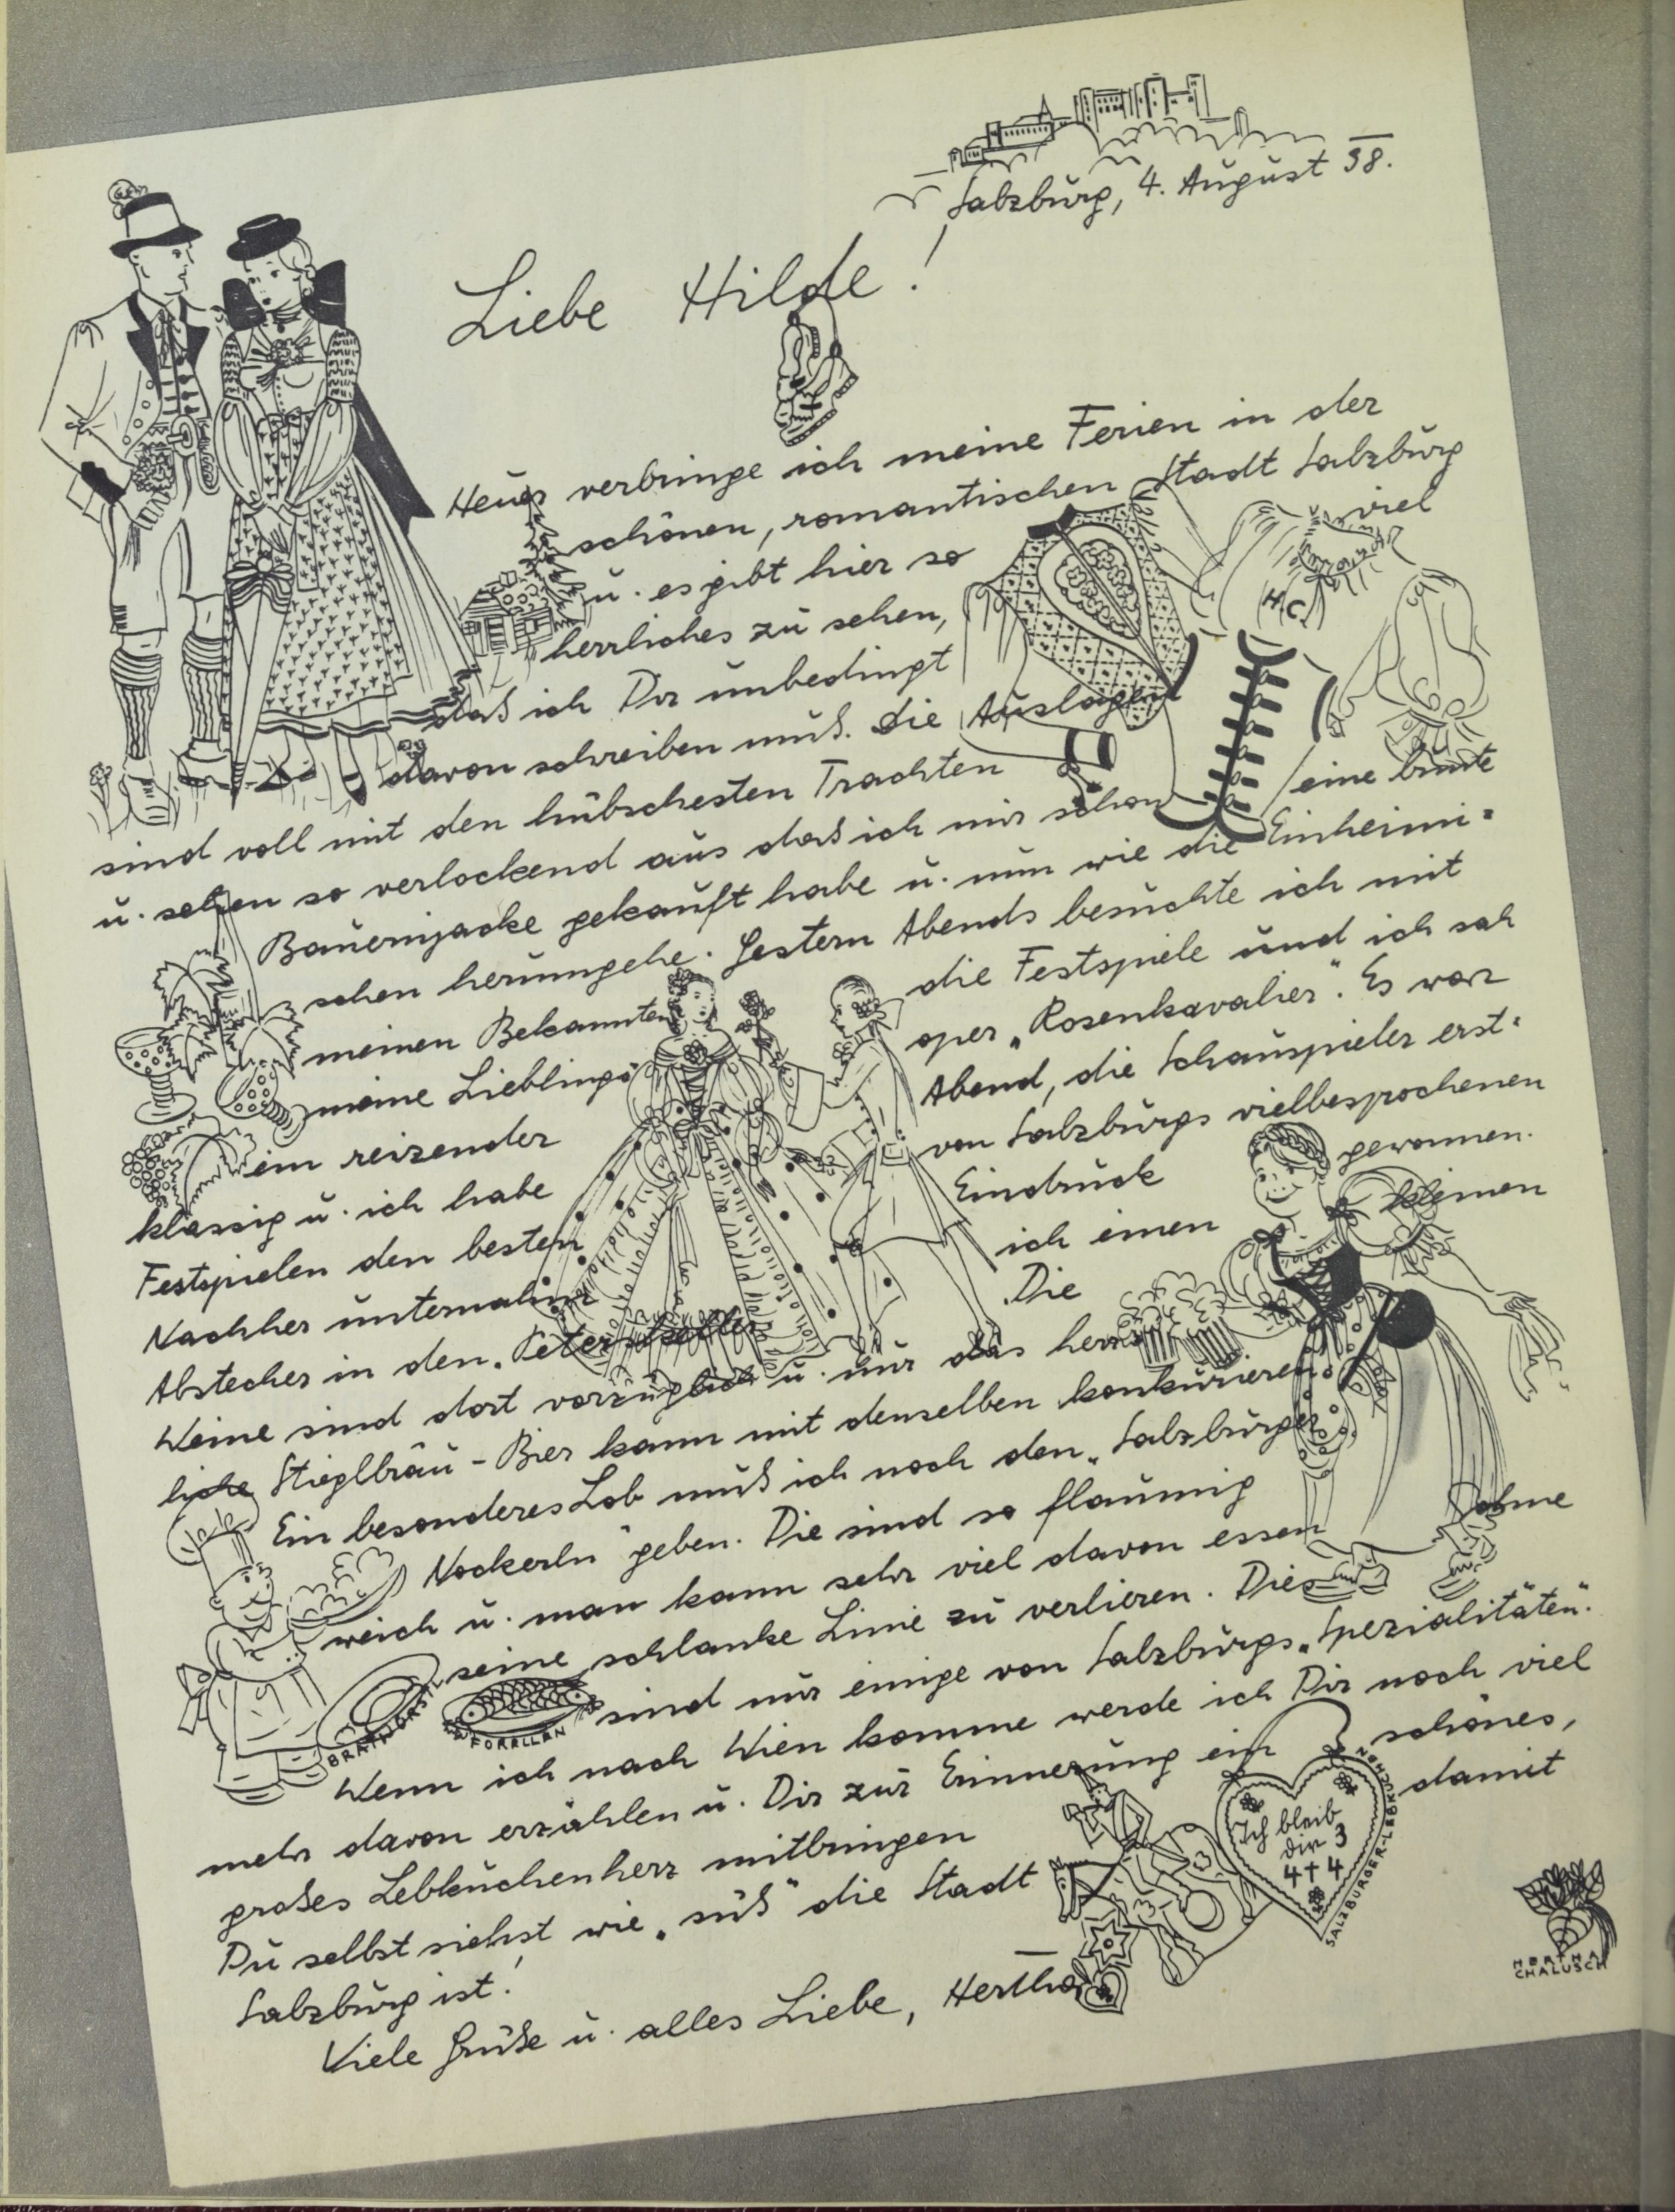 Salzburg, 4. August 38.
Liebe Hilde!
Heuer verbringe ich meine Ferien in der
schönen, romantischen Stadt Salzburg
u. es gibt hier so viel
herrliches zu sehen,
daß ich Dir unbedingt
davon schreiben muß. Die Auslagen
sind voll mit den hübschesten Trachten
u. sehen so verlockend aus daß ich mir schon eine bunte
Bauernjacke gekauft habe u. nun wie die Einheimi=
schen herumgehe. Gestern Abends besuchte ich mit
meinen Bekannten die Festspiele und ich sah
meine Lieblings oper „Rosenkavalier". Es war
ein reizender Abend, die Schauspieler erst=
klassig u. ich habe von Salzburgs vielbesprochenen
Festspielen den besten Eindruck gewonnen.
Nachher unternahm ich einen kleinen
Abstecher in den „Peterskeller". Die
Weine sind dort vorzüglich u. nur das herr=
liche Stieglbräu - Bier kann mit denselben konkurieren.
Ein besonderes Lob muß ich noch den „Salzburger
Nockerln" geben. Die sind so flaumig
weich u. man kann sehr viel davon essen ohne
seine schlanke Linie zu verlieren. Dies
sind nur einige von Salzburgs „Spezialitäten".
Wenn ich nach Wien komme werde ich Dir noch viel
mehr davon erzählen u. Dir zur Erinnerung ein schönes,
großes Lebkuchenherz mitbringen damit
Du selbst siehst wie „süß" die Stadt
Salzburg ist!
Viele Grüße u. alles Liebe, Hertha
HC
BRATWÜRSTL
FORELLEN
Ich bleib
dir 3
4+4
SALZBURGER-LEBKUCHEN
HERTHA
CHALUSCH